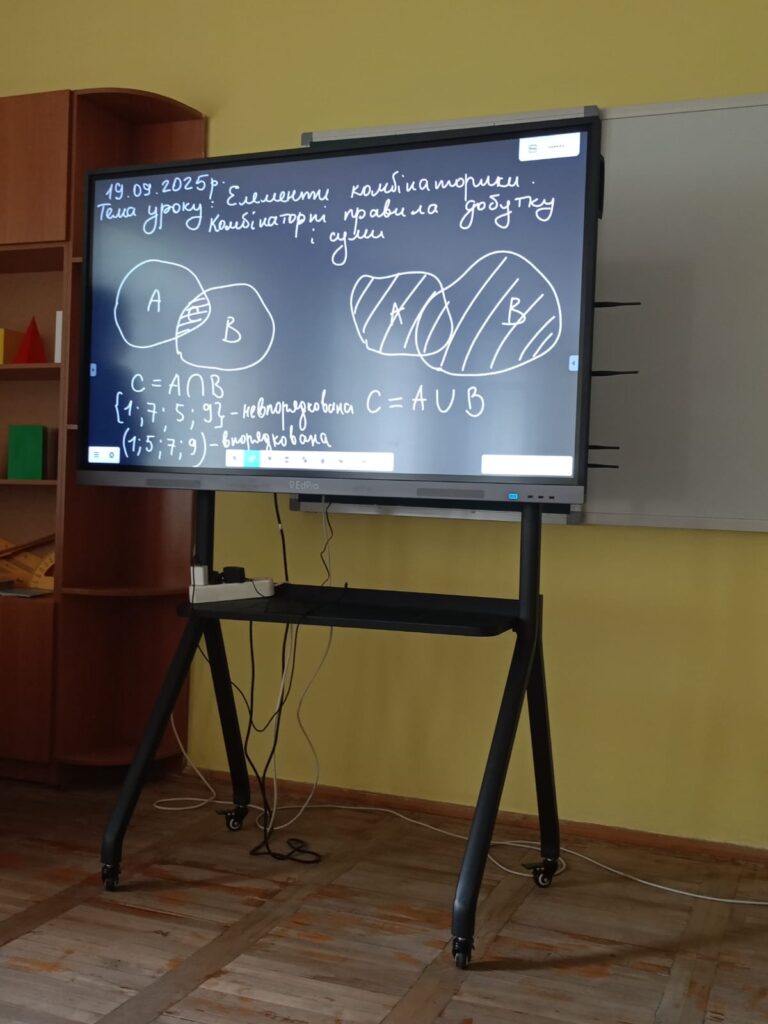 19.09.2025р.
Тема уроку: Елементи комбінаторики.
Комбінаторні правила добутку
і суми
A C B
A B
C = A ∩ B
C = A ∪ B
{1; 7; 5; 9} - невпорядкована
(1; 5; 7; 9) - впорядкована
EdPro